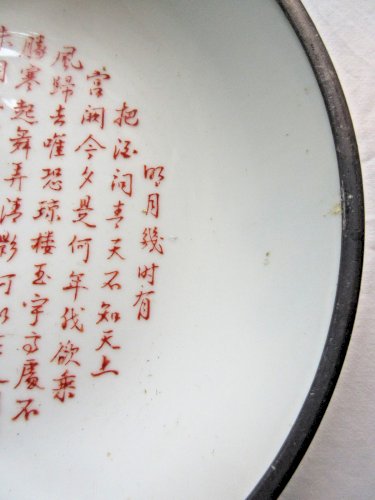 明月幾时有
把酒问青天不知天上
宫闕今夕是何年我欲乘
風歸去唯恐琼楼玉宇高處不
勝寒起舞弄清影何